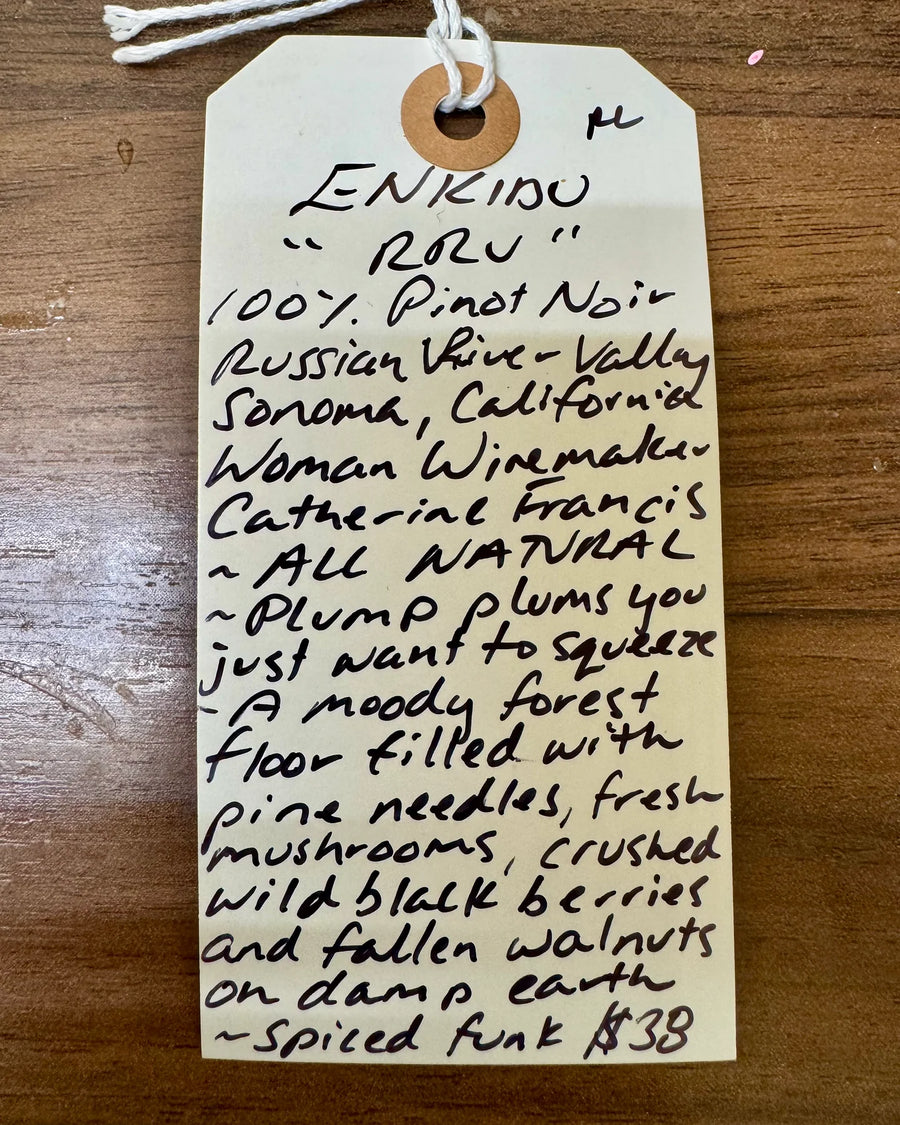 ENKIDU
"RRV"
100% Pinot Noir
Russian River Valley
Sonoma, California
Woman Winemaker
Catherine Francis
~ ALL NATURAL
~ Plump plums you
just want to squeeze
~ A moody forest
floor filled with
pine needles, fresh
mushrooms, crushed
wild black berries
and fallen walnuts
on damp earth
~ spiced funk $38